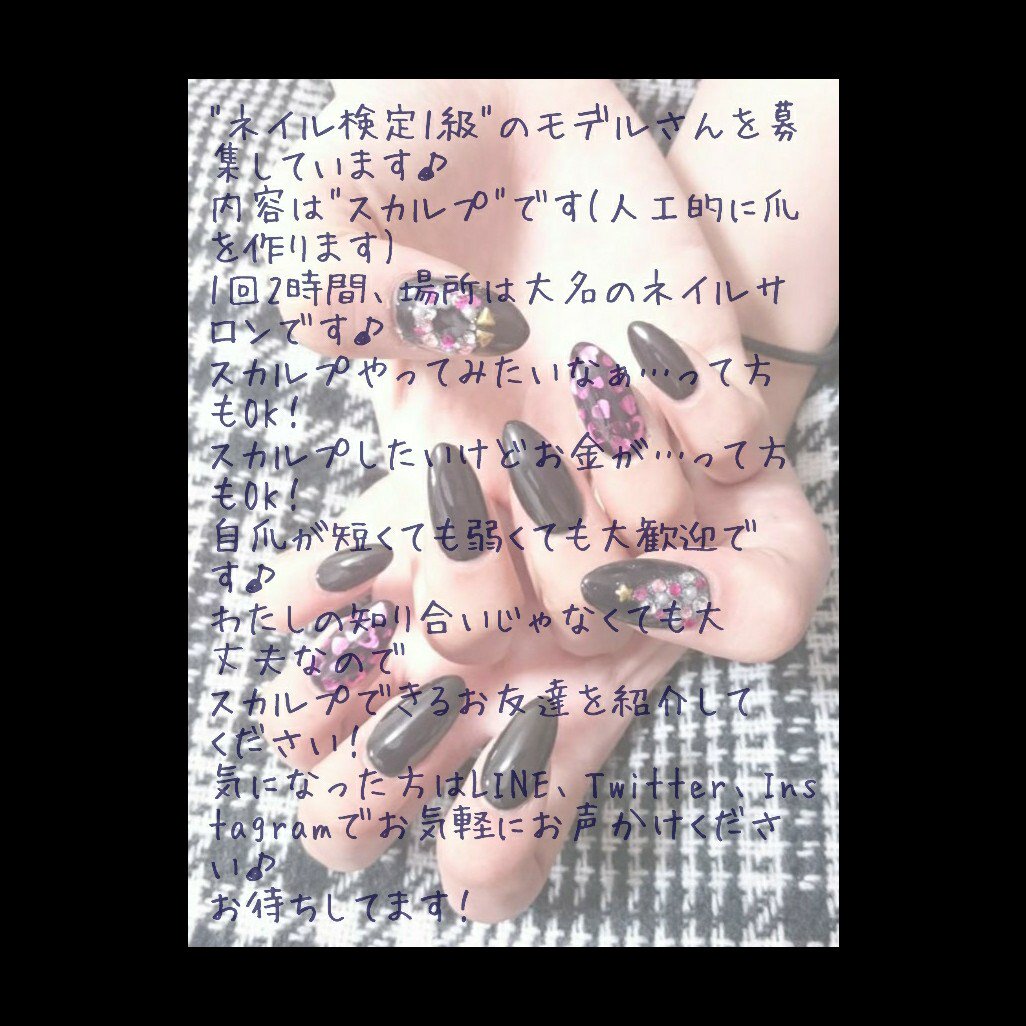 "ネイル検定1級"のモデルさんを募
集しています♪
内容は"スカルプ"です(人工的に爪
を作ります)
1回2時間、場所は大名のネイルサ
ロンです♪
スカルプやってみたいなぁ…って方
もOk!
スカルプしたいけどお金が…って方
もOk!
自爪が短くても弱くても大歓迎で
す♪
わたしの知り合いじゃなくても大
丈夫なので
スカルプできるお友達を紹介して
ください!
気になった方はLINE、Twitter、Ins
tagramでお気軽にお声かけくださ
い♪
お待ちしてます!